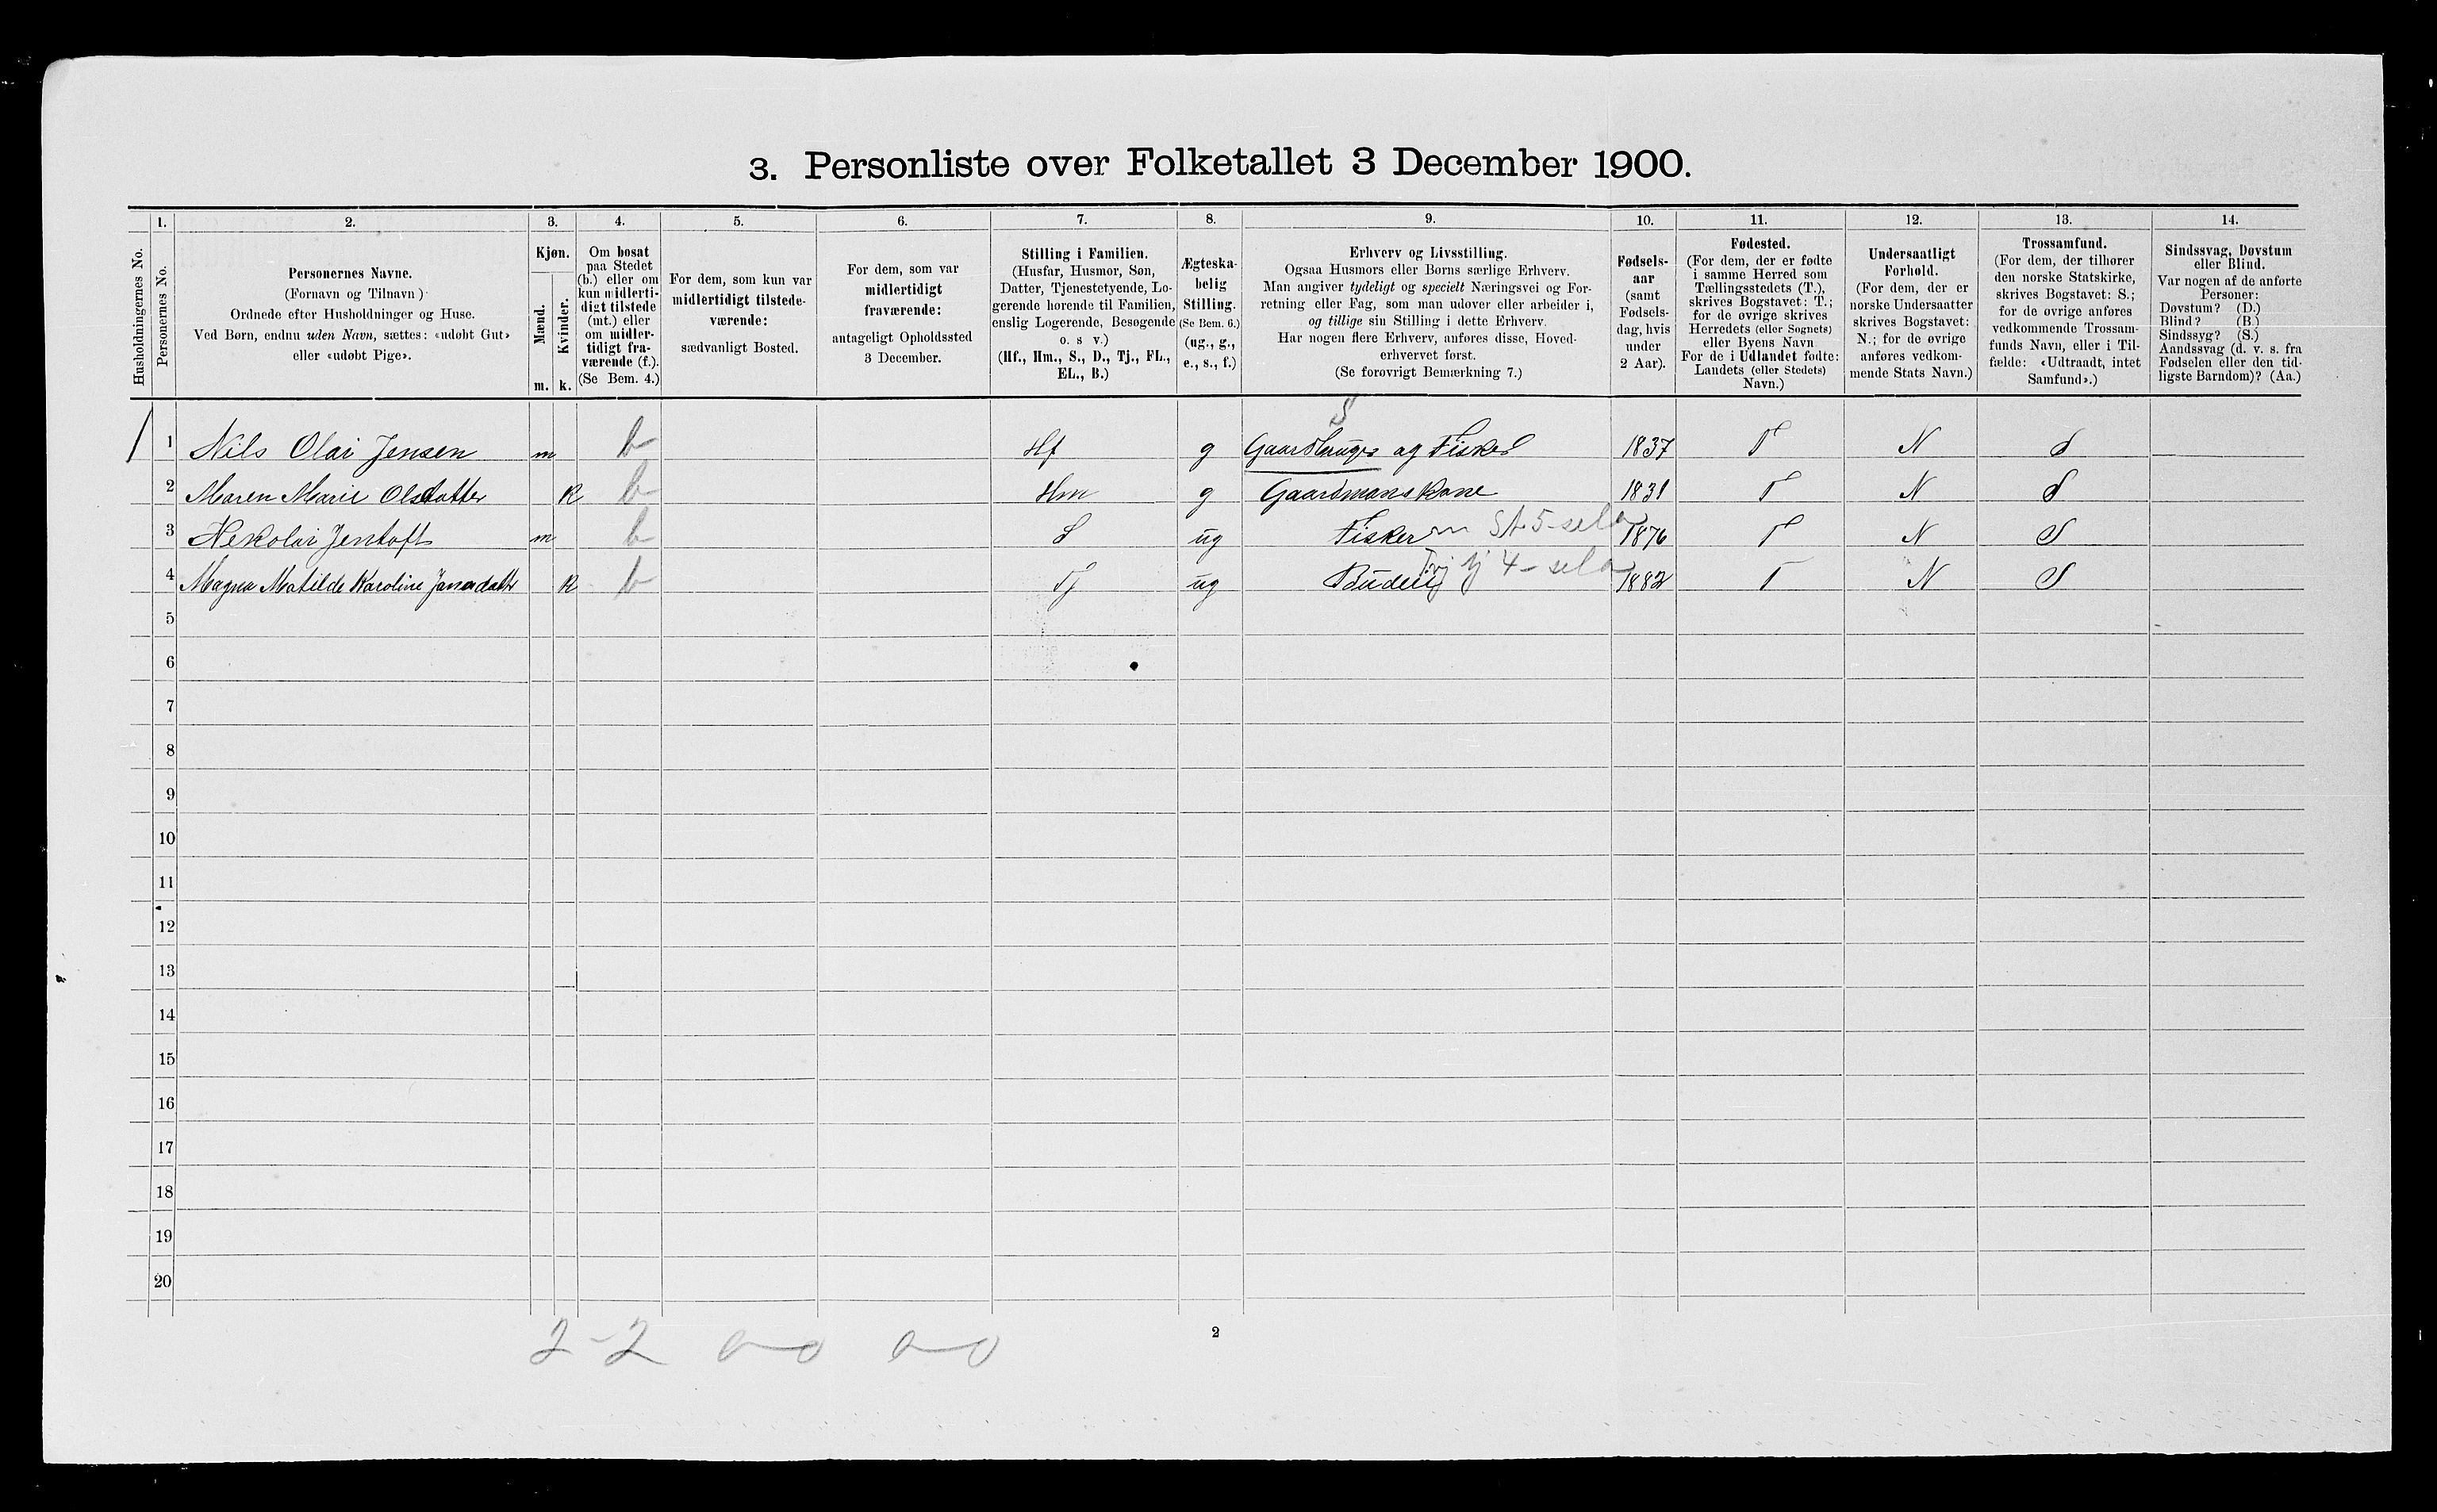 3. Personliste over Folketallet 3 December 1900.
Husholdningernes No.
1.
Personernes No.
2.
Personernes Navne.
(Fornavn og Tilnavn)
Ordnede efter Husholdninger og Huse.
Ved Børn, endnu uden Navn, sættes: «udøbt Gut»
eller «udøbt Pige».
3.
Kjøn.
Mænd.
m.
Kvinder.
k.
4.
Om bosat
paa Stedet
(b.) eller om
kun midlerti-
digt tilstede
(mt.) eller
om midler-
tidigt fra-
værende (f.).
(Se Bem. 4.)
5.
For dem, som kun var
midlertidigt tilstede-
værende:
sædvanligt Bosted.
6.
For dem, som var
midlertidigt
fraværende:
antageligt Opholdssted
3 December.
7.
Stilling i Familien.
(Husfar, Husmor, Søn,
Datter, Tjenestetyende, Lo-
gerende hørende til Familien,
enslig Logerende, Besøgende
o. s v.)
(Hf., Hm., S., D., Tj., FL.,
EL., B.)
8.
Ægteska-
belig
Stilling.
(Se Bem. 6.)
(ug., g.,
e., s., f.)
9.
Erhverv og Livsstilling.
Ogsaa Husmors eller Børns særlige Erhverv.
Man angiver tydeligt og specielt Næringsvei og For-
retning eller Fag, som man udøver eller arbeider i,
og tillige sin Stilling i dette Erhverv.
Har nogen flere Erhverv, anføres disse, Hoved-
erhvervet først.
(Se forøvrigt Bemærkning 7.)
10.
Fødsels-
aar
(samt
Fødsels-
dag, hvis
under
2 Aar).
11.
Fødested.
(For dem, der er fødte
i samme Herred som
Tællingsstedets (T.),
skrives Bogstavet: T.;
for de øvrige skrives
Herredets (eller Sognets)
eller Byens Navn
For de i Udlandet fødte:
Landets (eller Stedets)
Navn.)
12.
Undersaatligt
Forhold.
(For dem, der er
norske Undersaatter
skrives Bogstavet:
N.; for de øvrige
anføres vedkom-
mende Stats Navn.)
13.
Trossamfund.
(For dem, der tilhører
den norske Statskirke,
skrives Bogstavet: S.;
for de øvrige anføres
vedkommende Trossam-
funds Navn, eller i Til-
fælde: «Udtraadt, intet
Samfund».)
14.
Sindssvag, Døvstum
eller Blind.
Var nogen af de anførte
Personer:
Døvstum? (D.)
Blind? (B.)
Sindssyg? (S.)
Aandssvag (d. v. s. fra
Fødselen eller den tid-
ligste Barndom)? (Aa.)
S
1 Nils Olai Jensen m b Hf g Gaardbruger og Fisker 1837 T N S
2 Maren Marie Olsdatter k b Hm g Gaardmanskone 1831 T N S
3 Nekolai Jentoft m b S ug Fisker 1876 T N S
4 Magna Matilde Karoline b Tj ug Budeie 1882 T N S
5
6
7
8
9
10
11
12
13
14
15
16
17
18
19
20
2-2 0-0 0-0
2